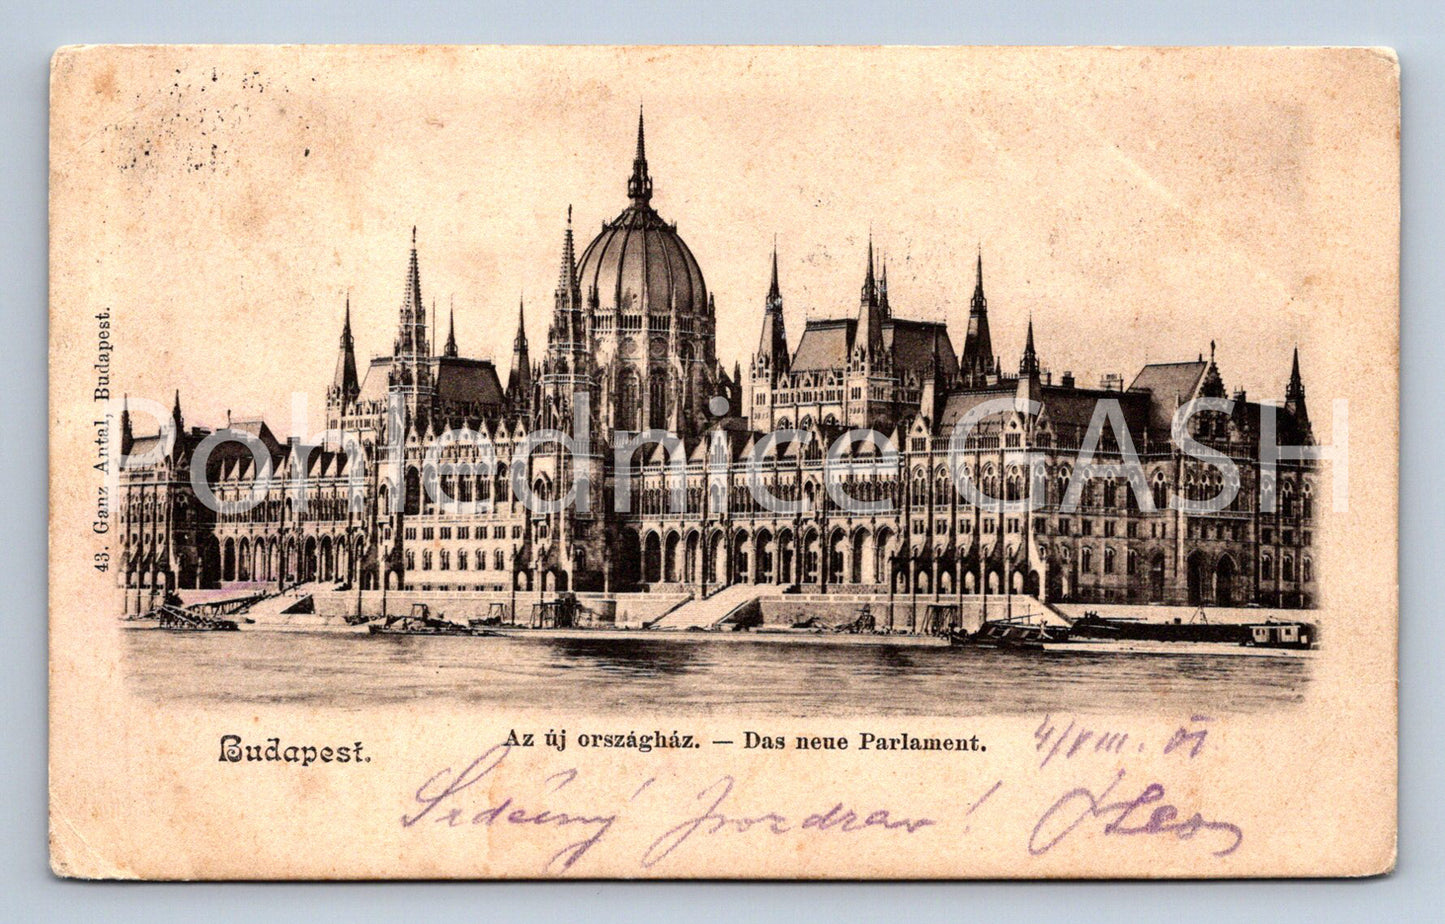 43. Ganz Antal, Budapest.
Pohlednice GASH
Budapest.
Az új országház. — Das neue Parlament.
4/VIII. 01
Srdečný pozdrav!